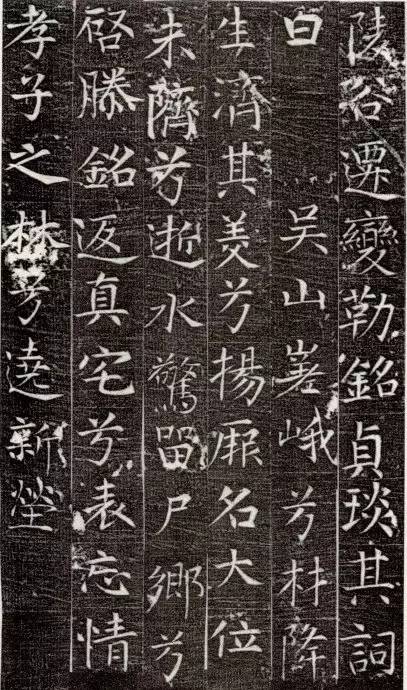 陵谷遷變勒銘貞琰其詞
曰 吴山嵳峨兮材降
生濟其美兮揚厥名大位
未隮兮逝水驚留尸鄉兮
啓滕銘返真宅兮表忘情
孝子之林兮遶新塋